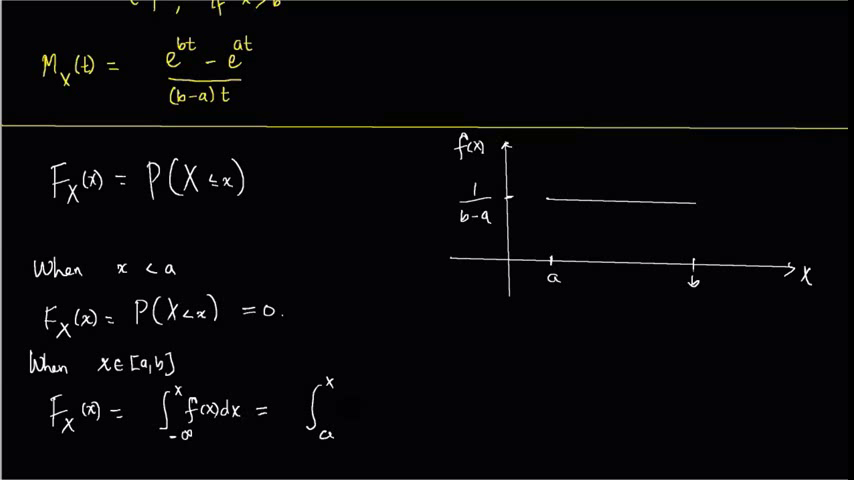 if x > b
M_X(t) = (e^{bt} - e^{at}) / ((b-a)t)
F_X(x) = P(X ≤ x)
When x < a
F_X(x) = P(X < x) = 0.
When x ∈ [a,b]
F_X(x) = ∫_{-∞}^{x} f(x)dx = ∫_{a}^{x}
f(x)
1/(b-a)
a
b
X